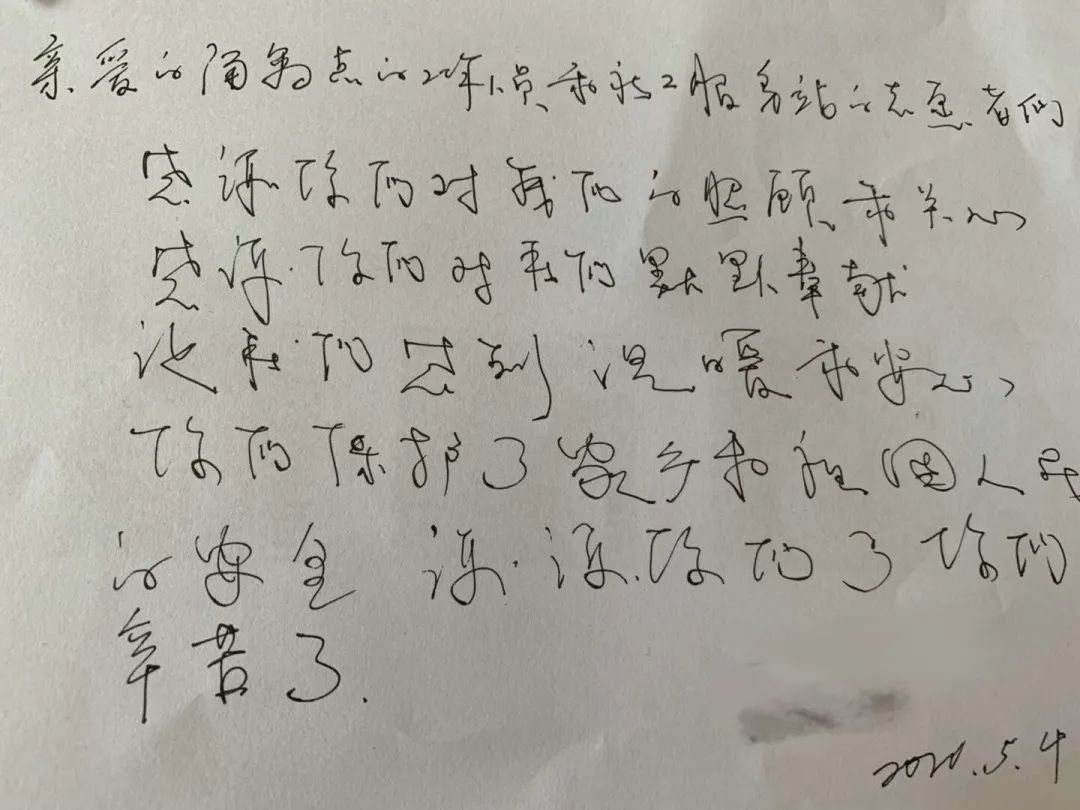 亲爱的隔离点的工作人员和社工服务站的志愿者们
感谢你们对我们的照顾和关心
感谢你们对我们默默奉献
让我们感到温暖和安心
你们保护了家乡和祖国人民
的安全 谢谢你们了你们
辛苦了.
2020.5.4